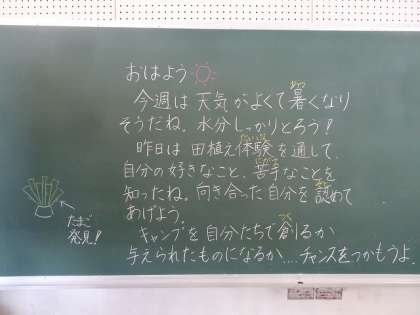 おはよう
今週は天気がよくて暑くなり
そうだね。水分しっかりとろう!
昨日は田植え体験を通して、
自分の好きなこと、苦手なことを
知ったね。向き合った自分を認めて
あげよう。
キャンプを自分たちで創るか
与えられたものになるか…チャンスをつかもうよ。
たまご
発見!